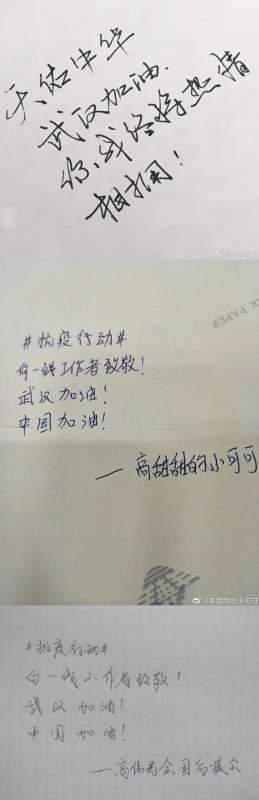 天佑中华
武汉加油.
你、我终将热情
相拥！
CK PAPER
#抗疫行动#
向一线工作者致敬！
武汉加油！
中国加油！
——高甜甜的小可可
@高甜甜的小可可
#抗疫行动#
向一线工作者致敬！
武汉加油！
中国加油！
——高伟光全国后援会